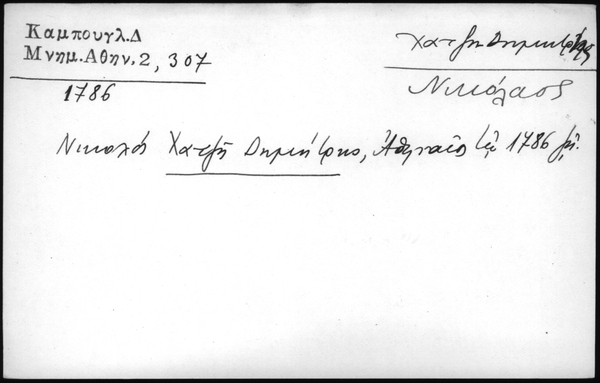 Καμπουγλ.Δ
Μνημ.Αθην.2, 307
1786
Χατζη Δημητρίης
Νικόλαος
Νικολός Χατζῆ Δημήτρης, Ἀθηναῖος 1786